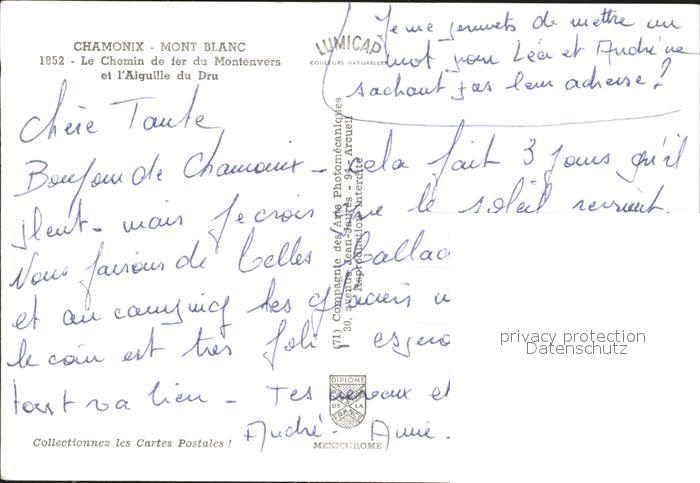 CHAMONIX - MONT BLANC
1852 - Le Chemin de fer du Montenvers
et l'Aiguille du Dru
LUMICAP
COULEURS NATURELLES
Je me permets de mettre un
mot pour Léa et André ne
sachant pas leur adresse?
Chère Tante
Bonjour de Chamonix - cela fait 3 jours qu'il
pleut - mais je crois que le soleil revient.
Nous faisons de belles ballad
et au camping les
le coin est très joli -
tout va bien - Tes neveux et
André - Annie.
(71) Compagnie des Arts Photomécaniques
30, avenue Jean-Jaurès - 94 - Arcueil
Reproduction interdite
privacy protection
Datenschutz
DIPLOME
DE LA
FRANCE
MEXICHROME
Collectionnez les Cartes Postales !